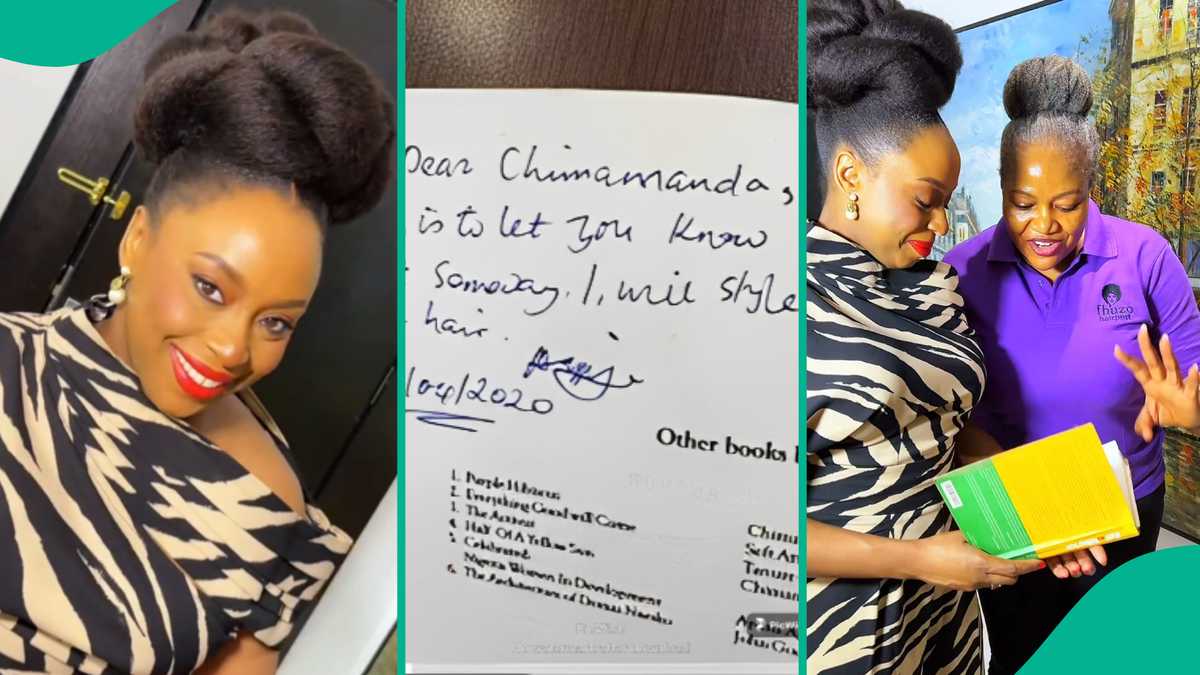 Dear Chimamanda,
is to let you know
someday. I, will style
hair.
/04/2020
Other books
1. Purple Hibiscus
2. Everything Good will Come
3. The Activist
4. Half Of A Yellow Sun
5. Celebrated:
Nigeria Women In Development
6. The Architecture of Demas Nwoko
China
PicWi
fhuzo